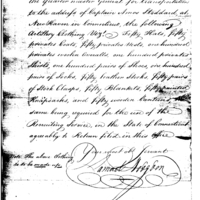 the quarter master General for transportation
to the address of Captain Amos Stoddard, at
New Haven in Connecticut, the following
Artillery Clothing Viz! Fifty Hats, fifty
privates Coats, fifty privates Vests, one hundred
privates woolen Overalls, one hundred privates
Shirts, one hundred pairs of Shoes, one hundred
pairs of Socks, fifty leather Stocks, fifty
of Stock Clasps, fifty Blankets, fifty
Knapsacks, and fifty
same being required for the use of the
Recruiting Service, in the State of Connecticut
agreeably to Return filed in this office
Note The above Clothing
to be
Your most obt. Servant
Samuel Hodgdon